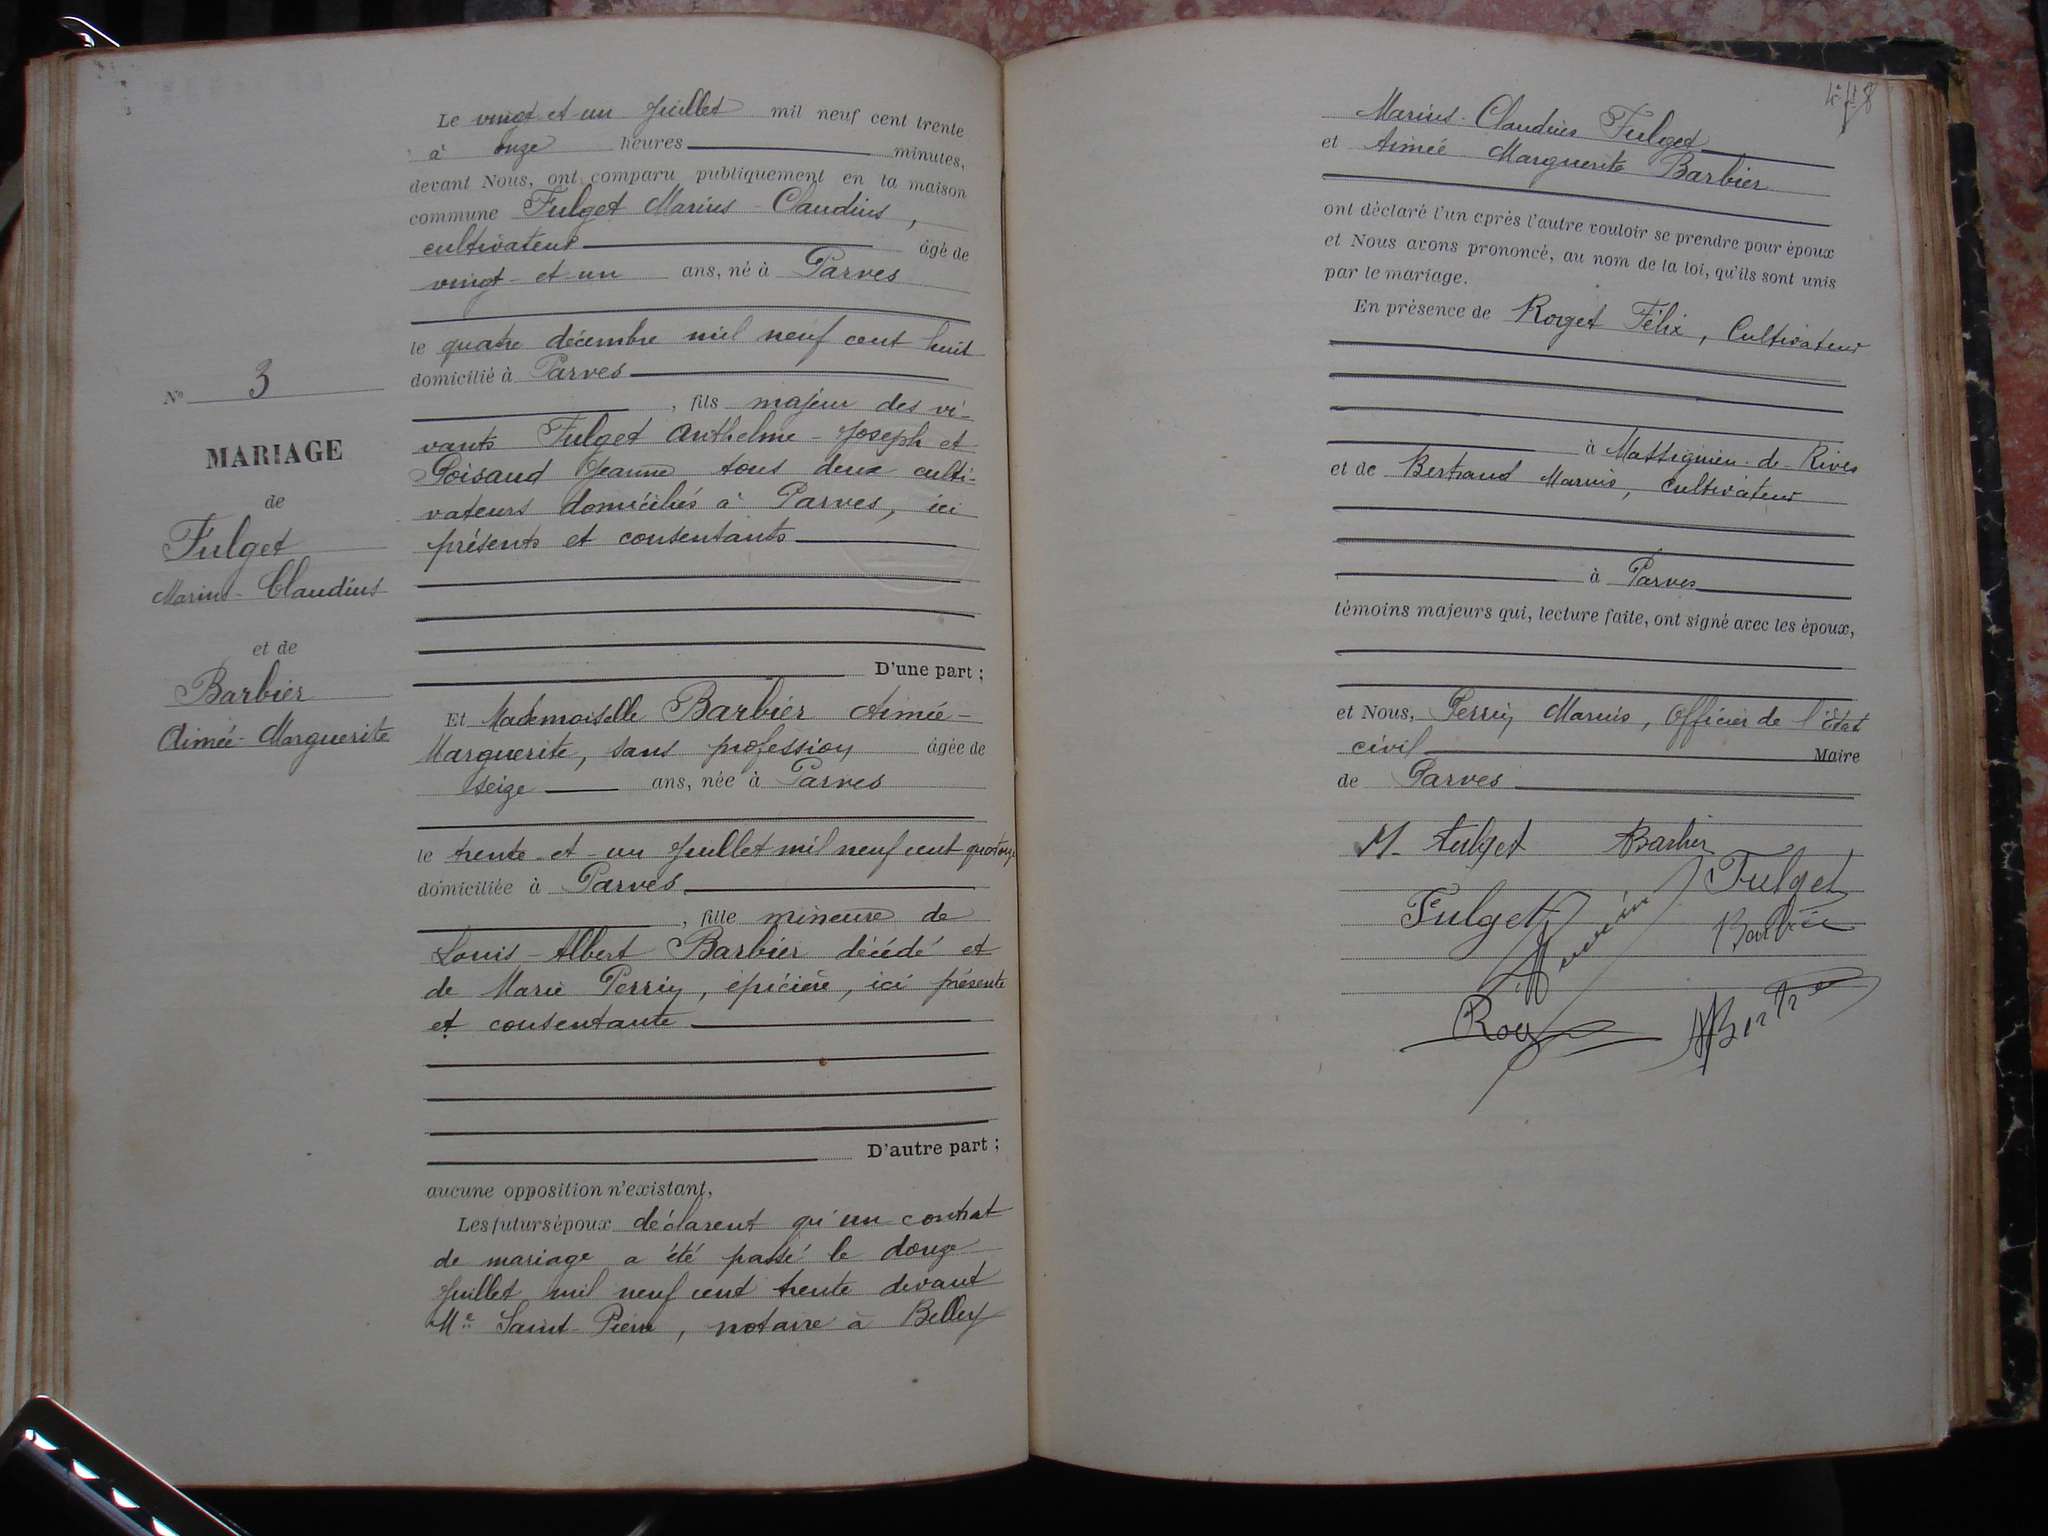 Le vingt et un Juillet mil neuf cent trente
à onze heures minutes,
devant Nous, ont comparu publiquement en la maison
commune Fulget Marius - Claudius,
cultivateur âgé de
vingt et un ans, né à Parves
le quatre décembre mil neuf cent huit
domicilié à Parves
, fils majeur des vi-
vants Fulget Anthelme - Joseph et
Goisaud Jeanne tous deux culti-
vateurs domiciliés à Parves, ici
présents et consentants
D'une part ;
Et Mademoiselle Barbier Aimée-
Marguerite, sans profession âgée de
seize ans, née à Parves
le trente et un Juillet mil neuf cent quatorze
domiciliée à Parves
, fille mineure de
Louis-Albert Barbier décédé et
de Marie Perrin, épicière, ici présente
et consentante
D'autre part ;
aucune opposition n'existant,
Les futurs époux déclarent qu'un contrat
de mariage a été passé le douze
Juillet mil neuf cent trente devant
Me Saint-Pierre, notaire à Belley
No 3
MARIAGE
de
Fulget
Marius-Claudius
et de
Barbier
Aimée-Marguerite
Marius-Claudius Fulget
et Aimée Marguerite Barbier
ont déclaré l'un après l'autre vouloir se prendre pour époux
et Nous avons prononcé, au nom de la loi, qu'ils sont unis
par le mariage.
En présence de Roget Félix, Cultivateur
à Massignieu-de-Rives
et de Bertrand Marius, Cultivateur
à Parves
témoins majeurs qui, lecture faite, ont signé avec les époux,
et Nous, Perrin Marius, Officier de l'Etat
civil Maire
de Parves
M. Fulget ABarbier
Fulget Fulget
Barbier